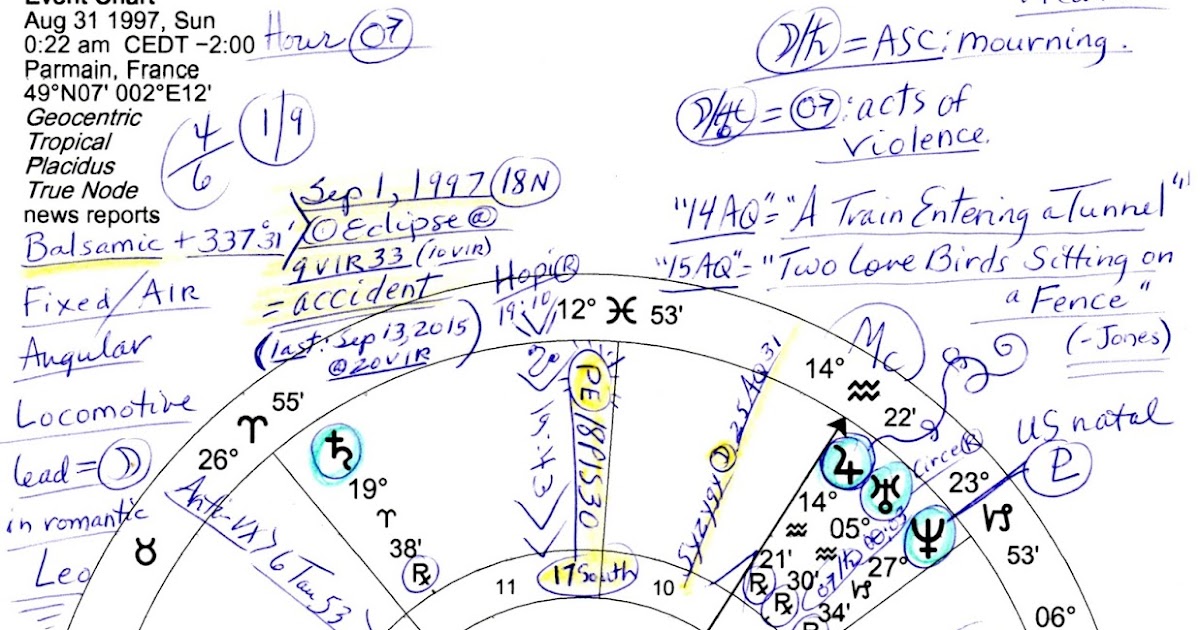 Event Chart
Aug 31 1997, Sun
0:22 am CEDT −2:00
Parmain, France
49°N07' 002°E12'
Geocentric
Tropical
Placidus
True Node
news reports
Hour 07
4/6
1/9
Balsamic + 337°31'
Fixed/AIR
Angular
Locomotive
lead = ☽
in romantic
Leo
Sep 1, 1997 18N
☉ Eclipse @
9 VIR 33 (10 VIR)
= accident
(last: Sep 13, 2015
@ 20 VIR)
☽/♄ = ASC: mourning.
= 07: acts of
violence.
"14 AQ" = "A Train Entering a Tunnel"
"15AQ" = "Two Love Birds Sitting on
a Fence"
(-Jones)
Hopi ℞
19:10
12° ♓ 53'
2°
19:43
PE 18PIS30
17 South
Syzygy ☽ 25AQ31
Mc
14° ♒ 22'
US natal
♇
Circe ℞
23° ♑ 53'
06°
26° ♈ 55'
♄
19°
♈
38'
℞
Anti-VX > 6 Tau 53
♉
11
10
♃
14°
♒
21'
℞
♅
05°
♒
30'
℞
♆
27°
♑
34'
℞